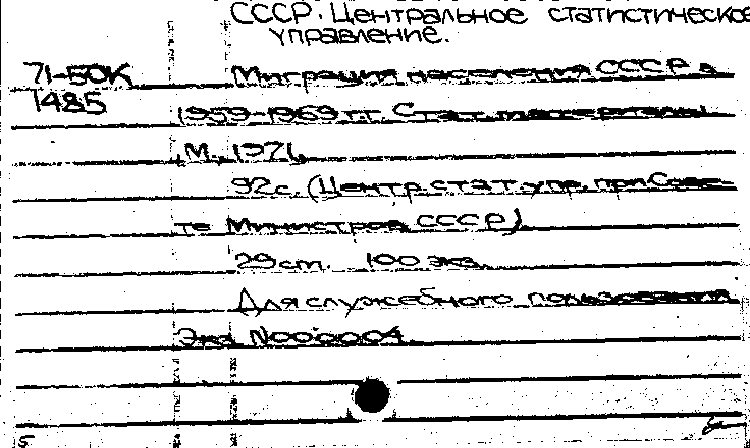 СССР. Центральное статистическое
управление.
71-50К Миграция населения СССР в
1485 1959-1969 гг. Стат. материалы
М., 1971,
92 с. (Центр. стат. упр. при Сове-
те Министров СССР)
29 cm. 100 экз.
Для служебного пользования
Экз. N000004.